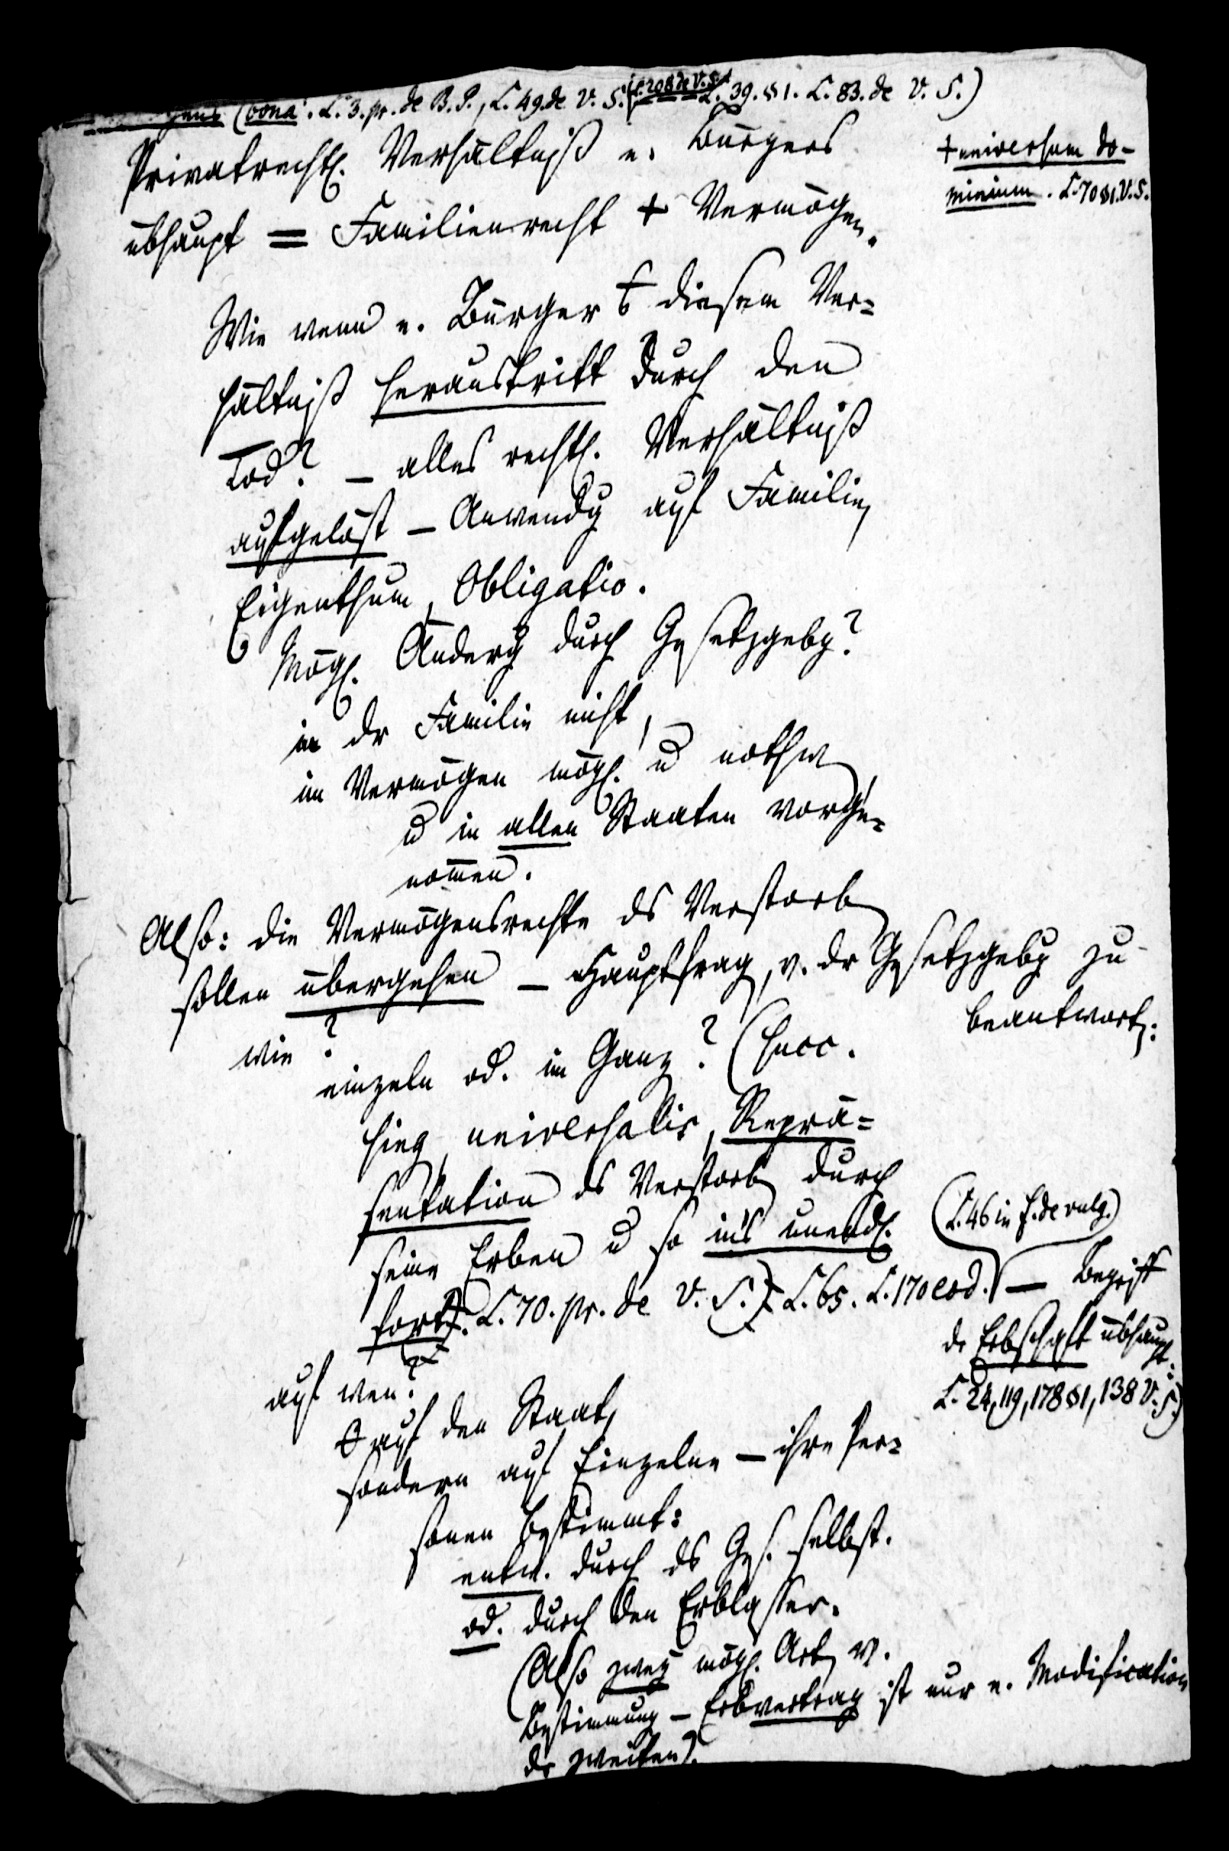 gens (bona: L. 3. pr. de B. P., L. 49. de V. S. (L. 208 de V. S.) L. 39. §1. L. 83. de V. S.)
Privatrechtl. Verhältniß e. Bürgers
+ universum do-
minium. L. 70 §1. V. S.
übhaupt = Familienrecht + Vermögen.
Wie wenn e. Bürger diesem Ver=
hältniß heraustritt durch den
Tod? – alles rechtl. Verhältniß
aufgelöst – Anwendg auf Familie,
Eigenthum, Obligatio.
Mögl. Änderg durch Gesetzgebg?
in dr Familie nicht,
im Vermögen mögl. u nothw
u in allen Staaten vorge=
nommen.
Also: die Vermögensrechte ds Verstorb
sollen übergehen – Hauptfrag, v. dr Gesetzgebg zu
beantwort:
wie?
einzeln od. im Ganz? (succ.
sing, universalis, Reprä=
sentation ds Verstorb durch
seine Erben u so ins unendl.
(L. 46 in f. de vulg.)
fort. L. 70. pr. de V. S.) L. 65. L. 170 eod. – Begriff
dr Erbschaft übhaupt:
L. 24, 119, 178 §1, 138 V. S.)
auf wen?
auf den Staat,
sondern auf Einzelne – ihre Per=
sonen bestimmt:
entw. durch ds Ges. selbst.
od. durch den Erblasser.
(Also zwey mögl. Art v.
Bestimmung – Erbvertrag ist nur e. Modification
dr zweiten).